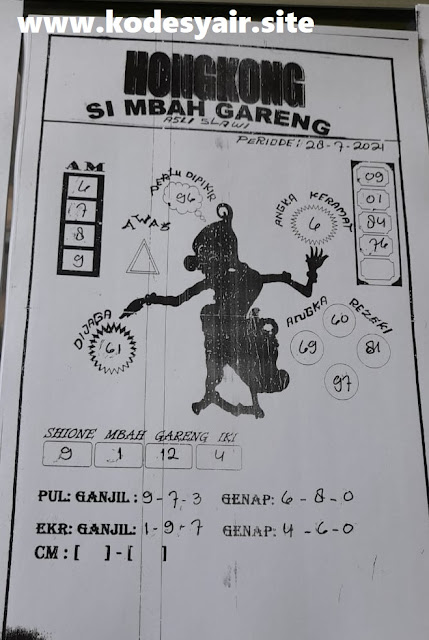 www.kodesyair.site
HONGKONG
SI MBAH GARENG
ASLI SLAWI
PERIODE: 28-7-2021
AM
6
7
8
9
PERLU DIPIKIR
96
AWAS
ANGKA KERAMAT
6
09
01
84
76
DIJAGA
61
ANGKA REZEKI
60
69
81
97
SHIONE MBAH GARENG IKI
9 1 12 4
PUL: GANJIL: 9-7-3 GENAP: 6-8-0
EKR: GANJIL: 1-9-7 GENAP: 4-6-0
CM : [ ] - [ ]